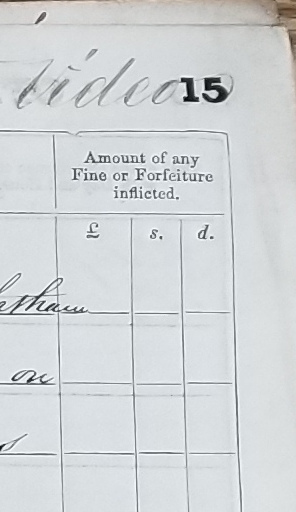 Video 15
Amount of any
Fine or Forfeiture
inflicted.
£ s. d.
on